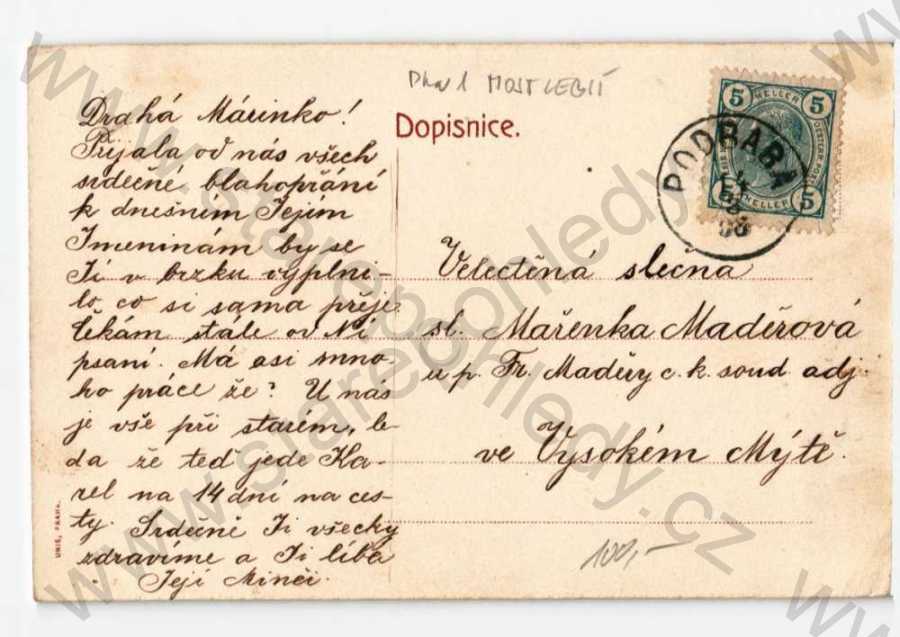 Drahá Márinko!
Přijala od nás všech
srdečné blahopřání
k dnešním Jejím
Jmeninám by se
Jí v brzku vyplni-
lo co si sama přeje.
Čekám stále od Ní
psaní. Má asi mno-
ho práce že? U nás
je vše při starém, le-
da že teď jede Ka-
rel na 14 dní na ces-
ty. Srdečně Ji všecky
zdravíme a Ji líbá
Její Minči.
UNIE, PRAHA.
MOST LEGIÍ
Dopisnice.
5 HELLER 5
5 HELLER 5
PODBABA
Velectěná slečna
sl. Mařenka Maděrová
u p. Fr. Maděry c. k. soud. adj.
ve Vysokém Mýtě.
100,-
www.starepohledy.cz